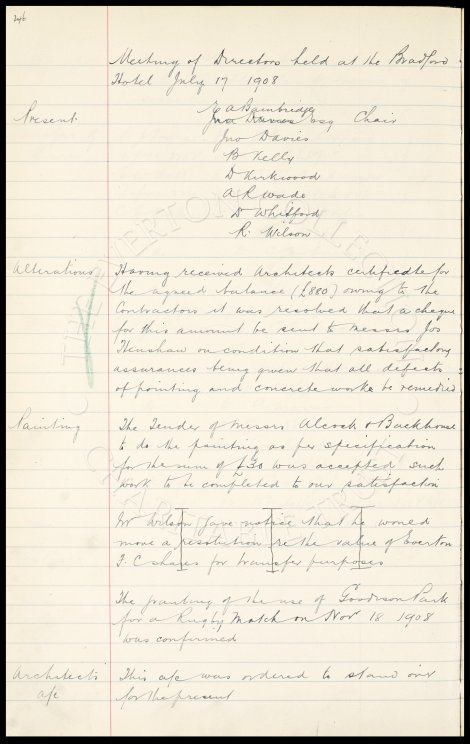 246
Meeting of Directors held at the Bradford
Hotel July 17 1908
Present
E A Bainbridge
Jno Davies Esq Chair
Jno Davies
B Kelly
D Kirkwood
A R Wade
D Whitford
R. Wilson
Alterations
Having received Architects certificate for
the agreed balance (£880) owing to the
Contractors it was resolved that a cheque
for this amount be sent to Messrs Jos
Henshaw on condition that satisfactory
assurances being given that all defects
of pointing and concrete works be remedied
Painting
The Tender of Messrs Alcock & Backhouse
to do the painting as per specification
for the sum of £30 was accepted such
work to be completed to our satisfaction
Mr Wilson gave notice that he would
move a resolution re the value of Everton
F.C shares for transfer purposes
The granting of the use of Goodison Park
for a Rugby Match on Nov 18 1908
was confirmed
Architects
a/c
This a/c was ordered to stand over
for the present
THE EVERTON COLLECTION
CHARITABLE TRUST